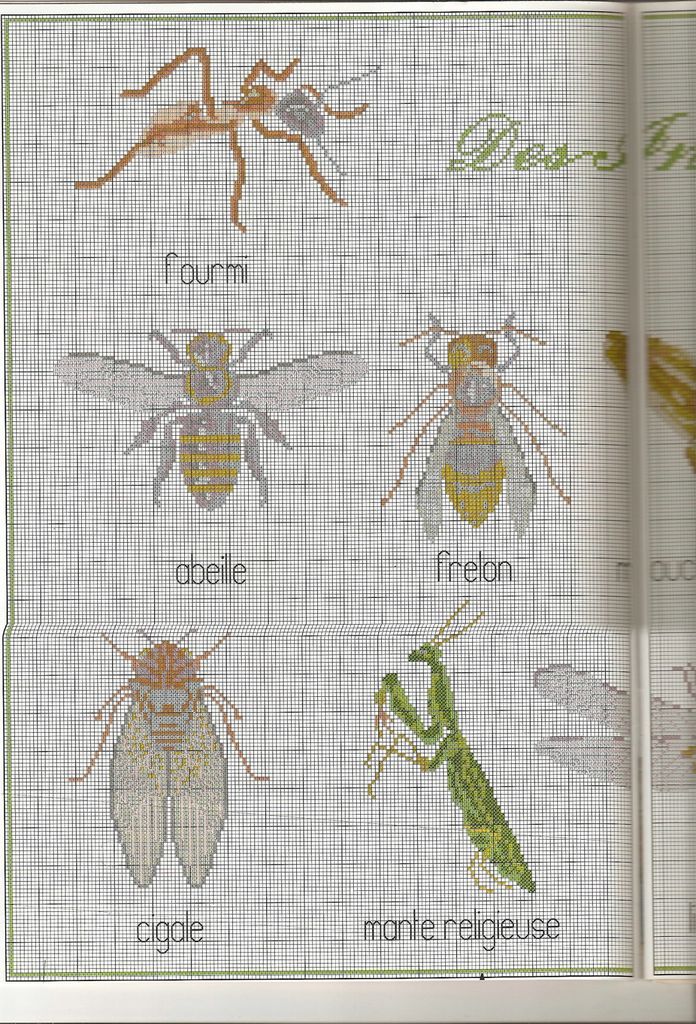 Des In
fourmi
abeille
frelon
cigale
mante religieuse